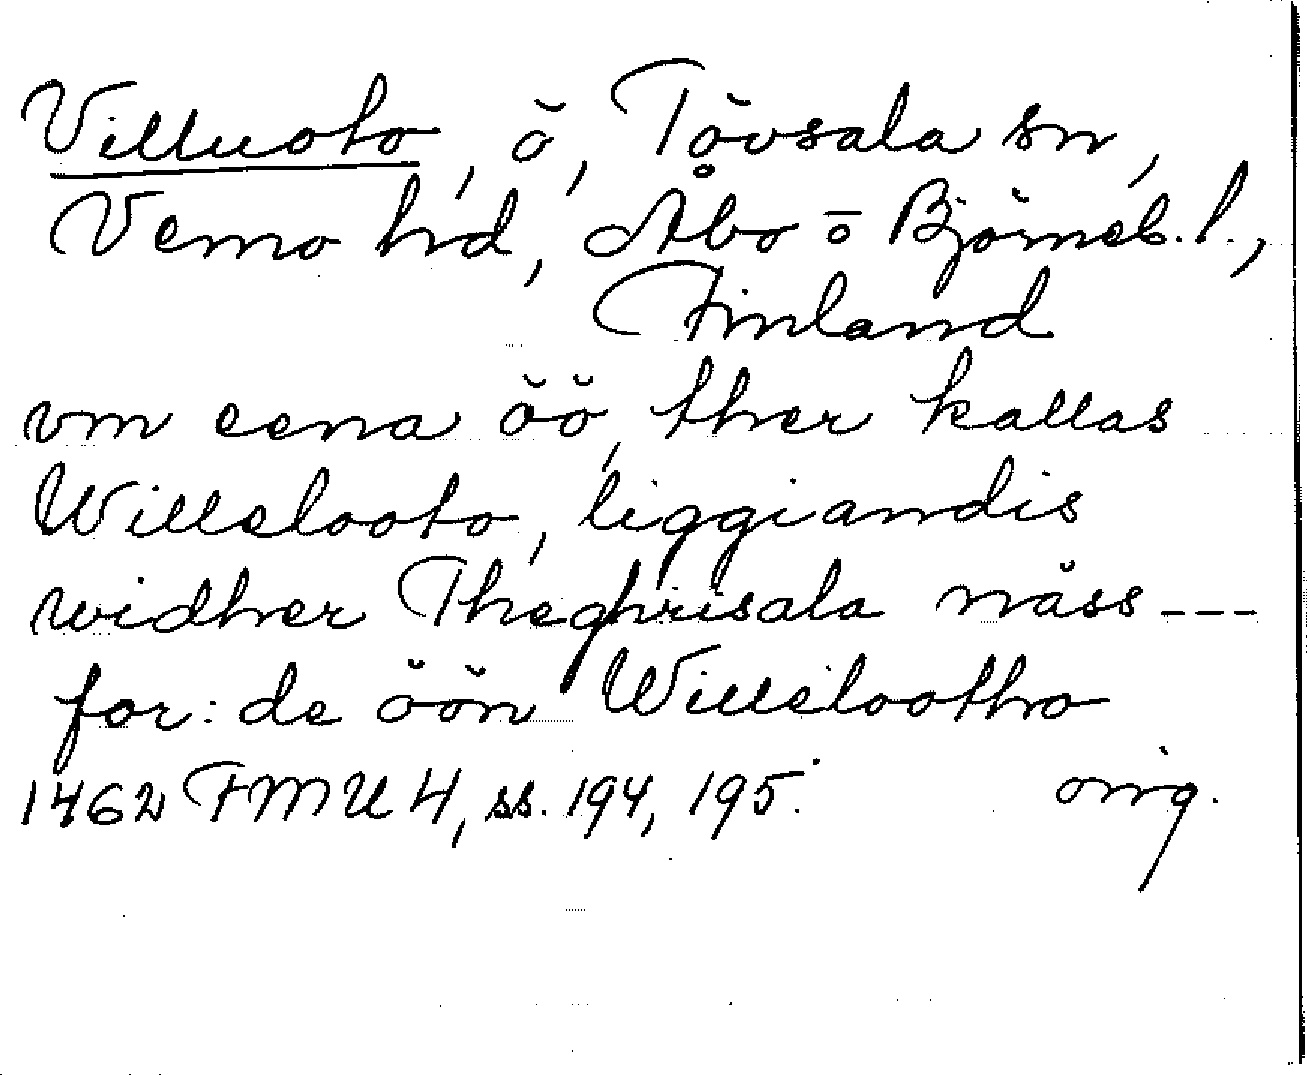 Villuoto, ö, Tövsala sn,
Vemo hd, Åbo o Björneb. l.,
Finland
vm eena öö, ther kallas
Willelooto, liggiandis
widher Theghrisala näss ---
for: de öön Willelootho
1462 FMU 4, ss. 194, 195. orig.